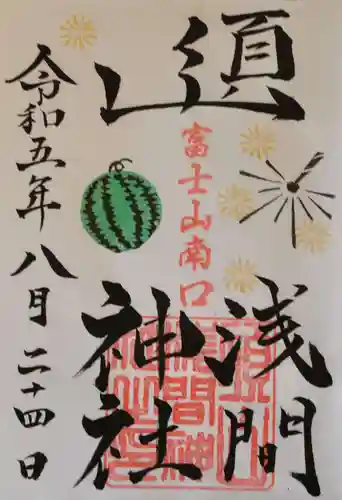 須山
浅間
神社
富士山南口
令和五年八月二十四日